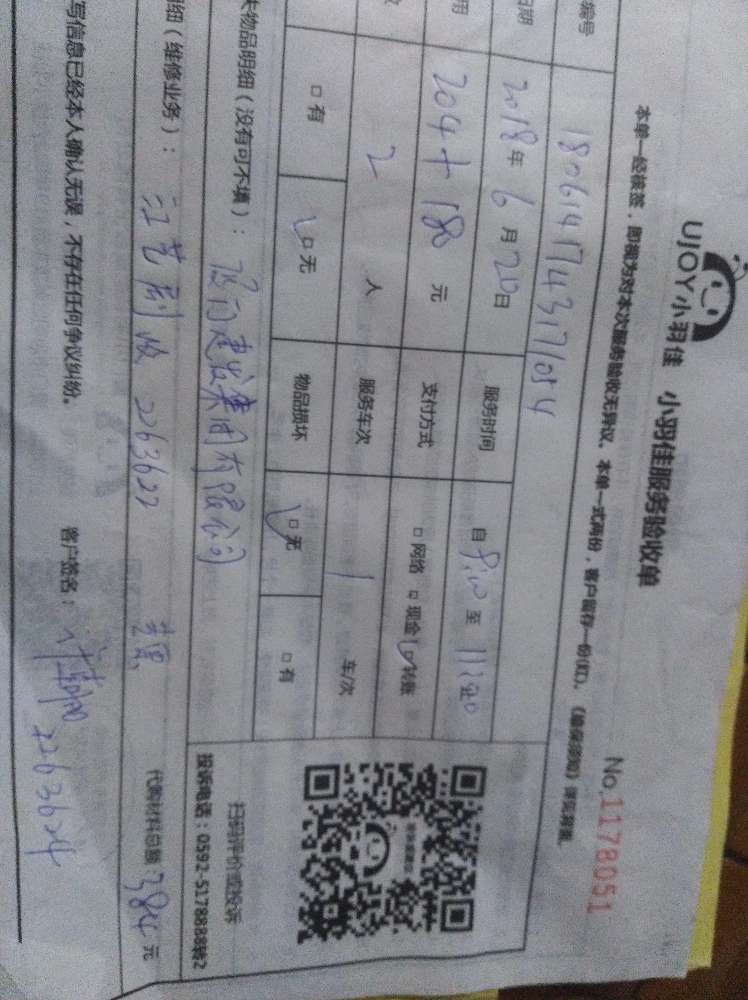 UJOY小羽佳 小羽佳服务验收单
No.1178051
本单一经核签，即视为对本次服务验收无异议。本单一式两份，客户留存一份(红)。
编号 1806141743171054
日期 2018年6月20日 服务时间 自 至
用 204+180元 支付方式 □网络 □现金 □转账
2人 服务车次 1 车/次
□有 □无 物品损坏 □无 □有
失物品明细（没有可不填）： 建发集团有限公司
扫码评价或投诉
投诉电话：0592-5178888转2
细（维修业务）： 2263622
代购材料总额 384元
写信息已经本人确认无误，不存在任何争议纠纷。 客户签名： 2263624